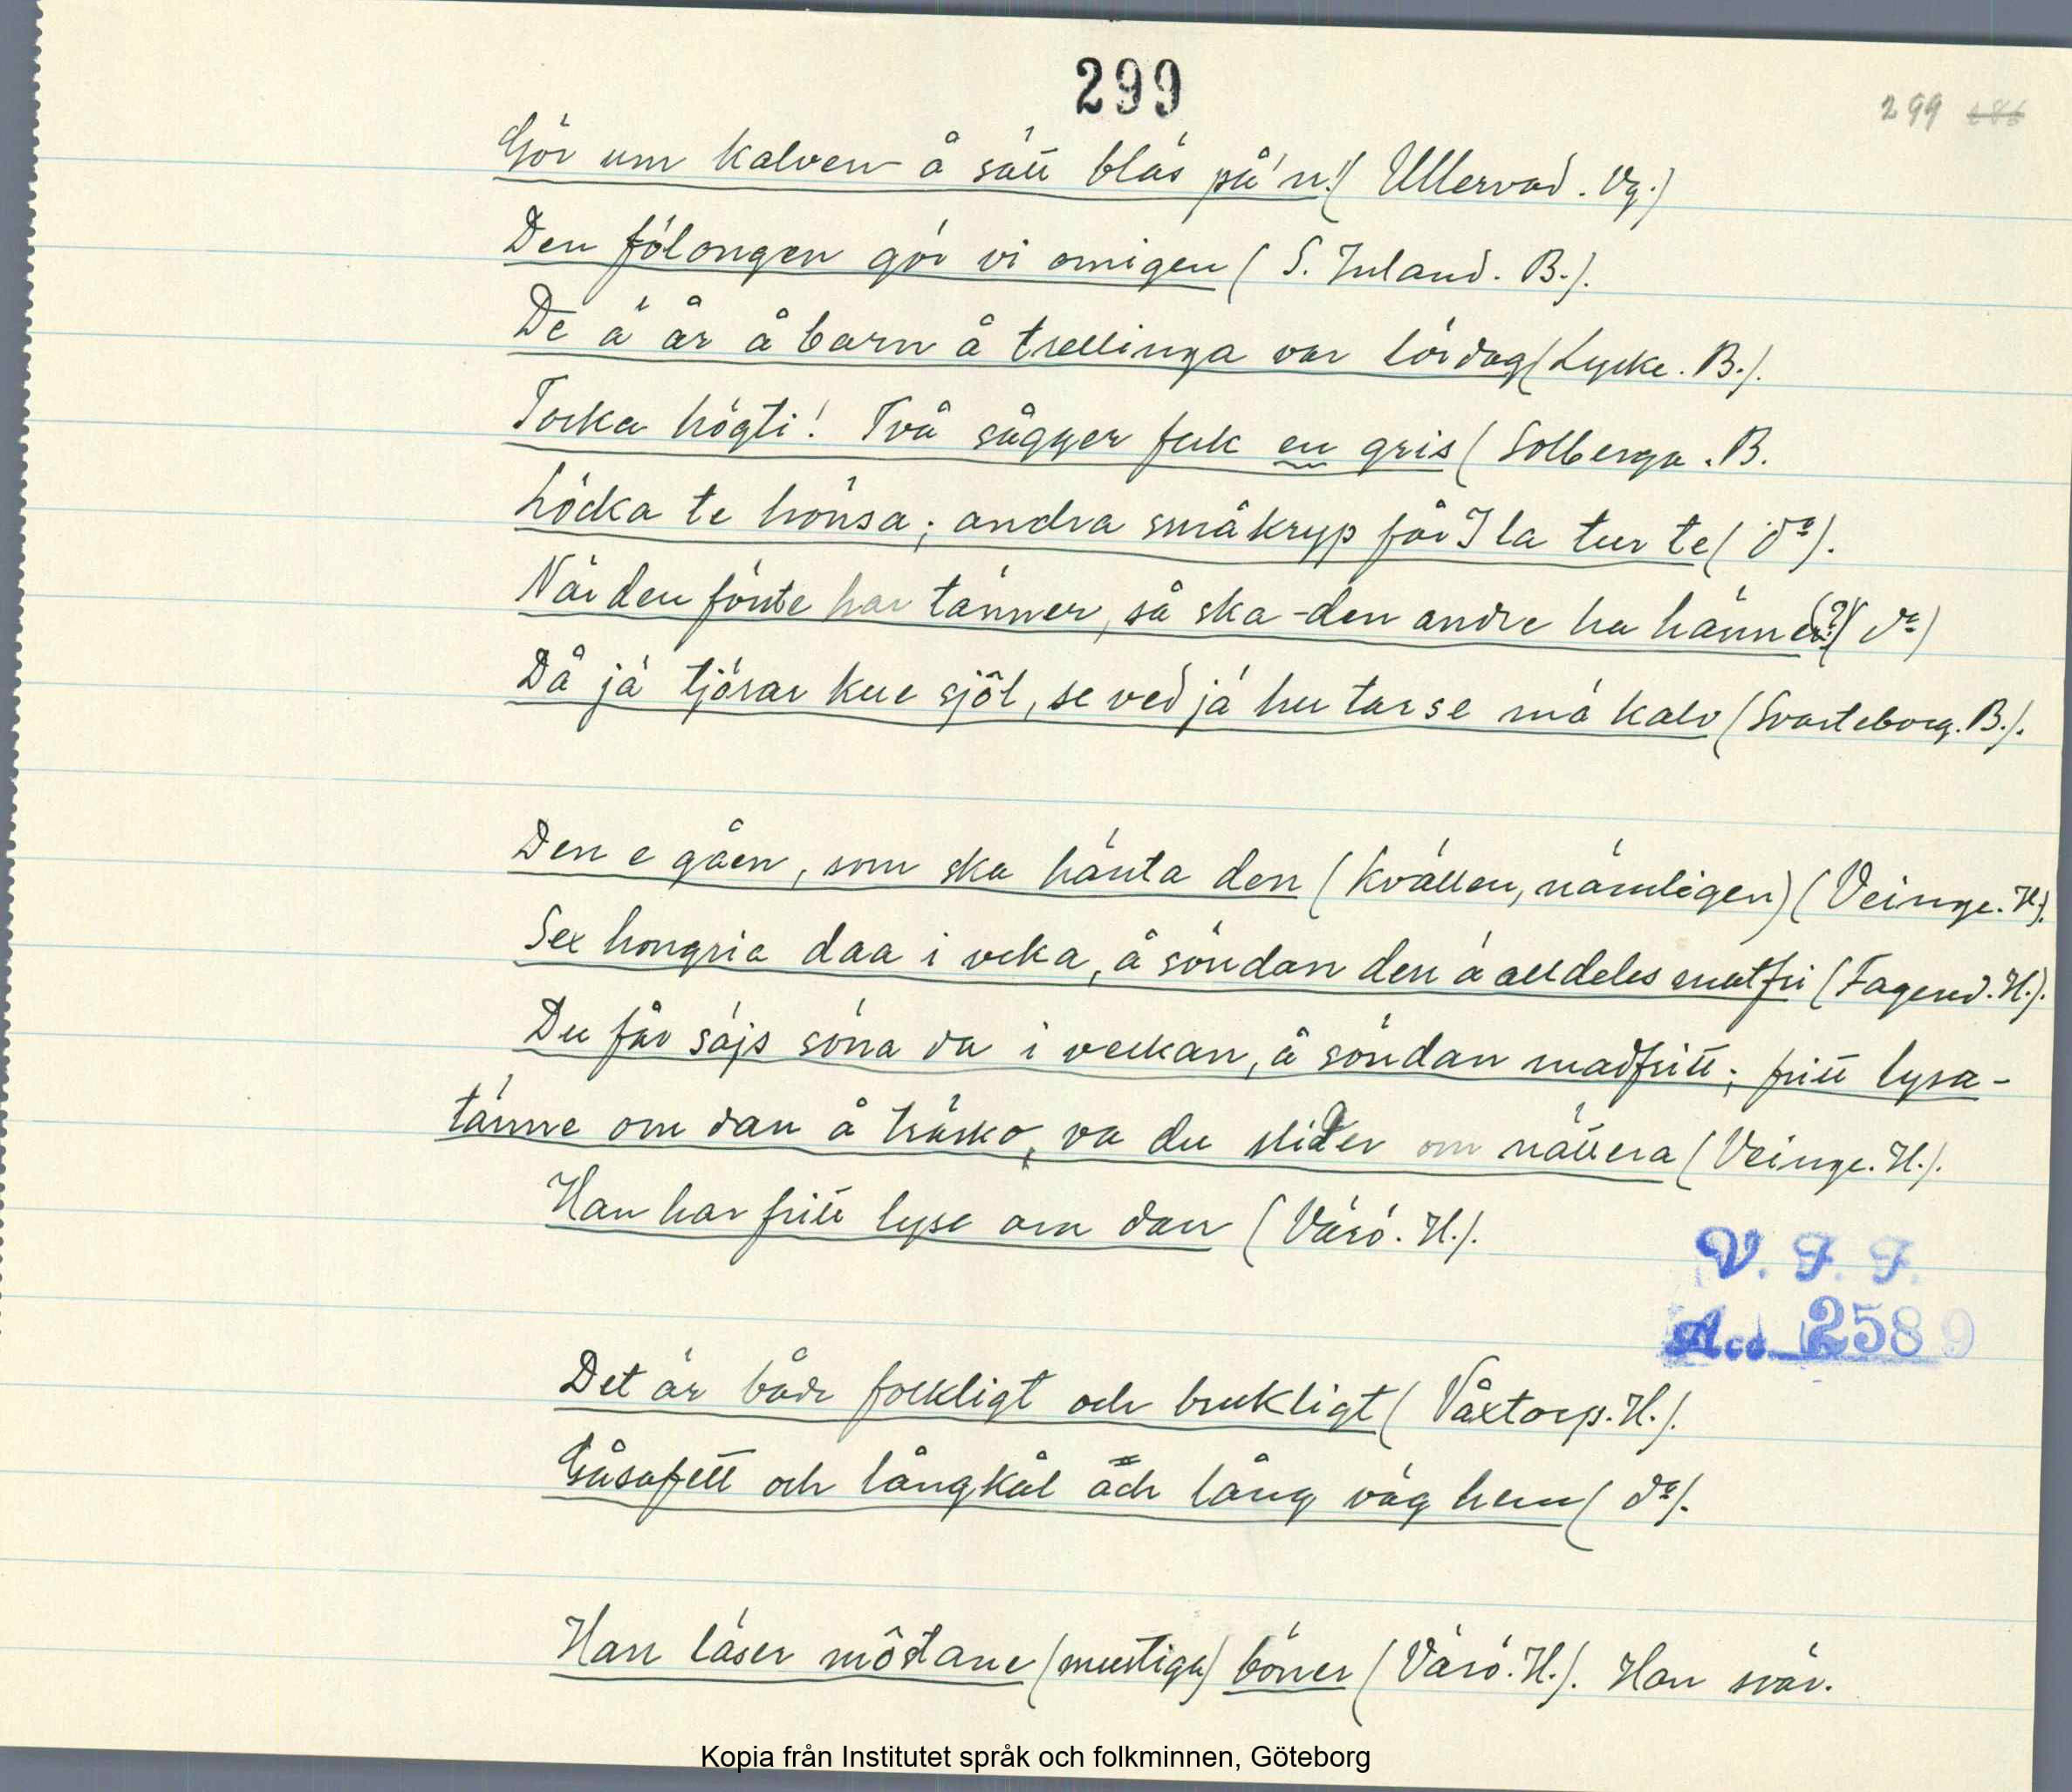 299
299 286
Gör um kalven å sätt blås på'n! (Ullervad. Vg.)
Den fölongen gör vi omigen (S. Inland. B.).
De ä är å barn å trellinga var lördag (Lycke. B.).
Tocka högti! Två sågger fekk en gris (Solberga. B.
Löcka te hönsa; andra småkryp får I la tur te (do).
När den förste har tänner, så ska den andre ha händer(?) (do)
Då jä tjörar kue sjôl, se ved jä hu tar se mä kalv (Svarteborg. B.).
Den e gåen, som ska hänta den (kvällen, nämligen) (Veinge. H.).
Sex hongria daa i veka, å söndan den ä alldeles matfri (Fagered. H.).
Du får säjs söna da i veckan, å söndan madfritt; fritt lysa-
tänne om dan å träsko, va du slider om nättera (Veinge. H.).
Han har fritt lyse om dan (Värö. H.).
V. F. F.
Acc. 2589
Det är både folkligt och brukligt (Våxtorp. H.).
Gåsafett och långkål och lång väg hem (do).
Han läser môstane (mustiga) böner (Värö. H.). Han svär.
Kopia från Institutet språk och folkminnen, Göteborg